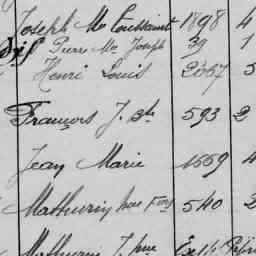 Joseph Me Toussaint 1898 4
Pierre Me Joseph 39 1
Henri Louis 2067 5
François J. Bte 593 2
Jean Marie 1559 4
Mathurin Fois 540
Mathurin J.